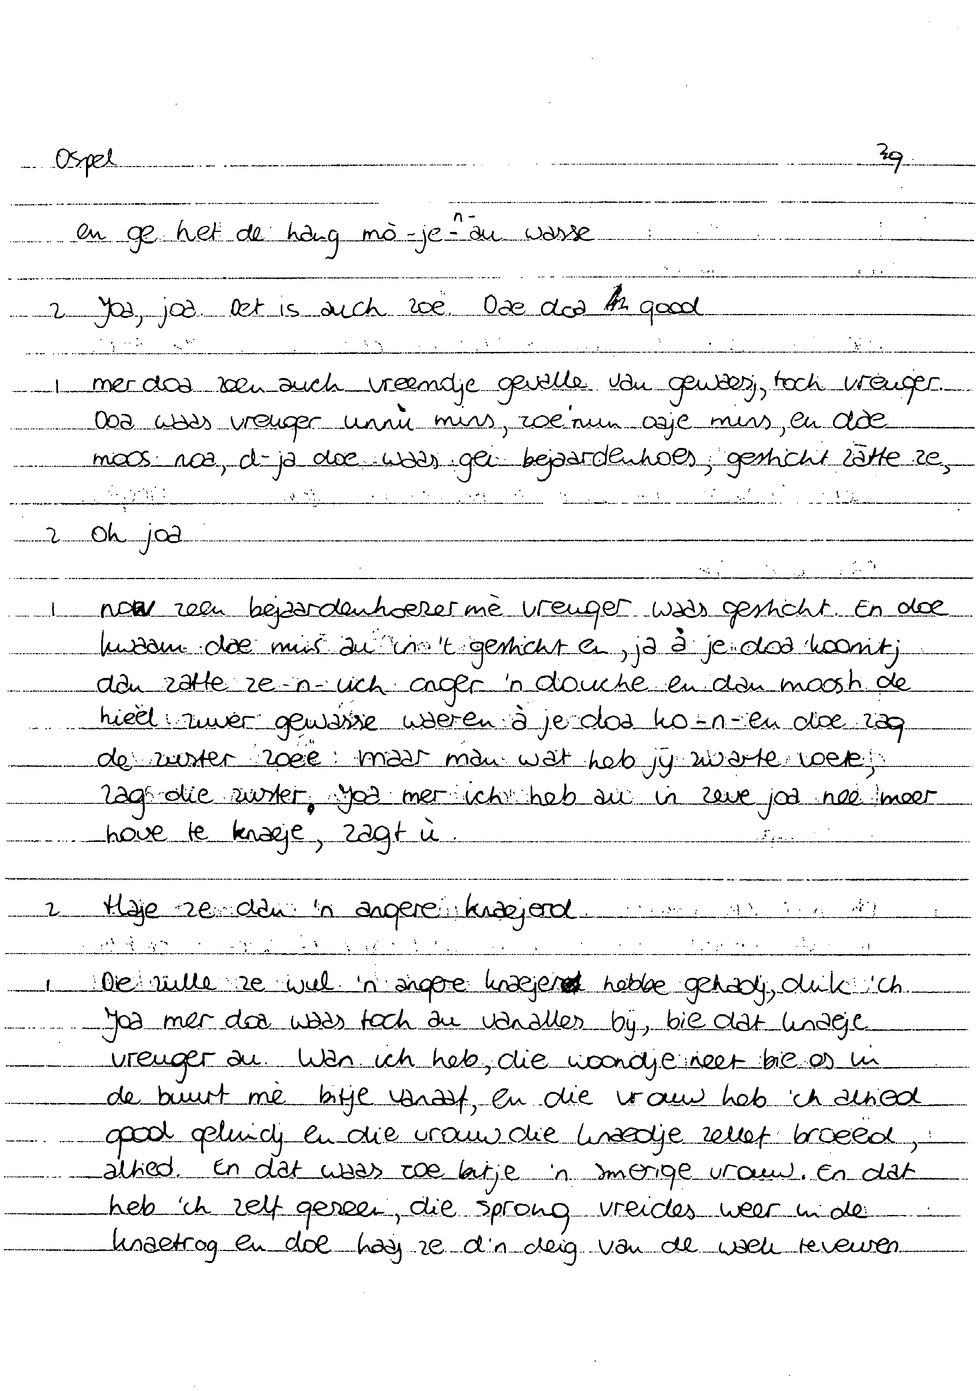 Ospel 39
en ge het de hang mò-je-n-au wasse
2 Joa, joa. Det is auch zoë. Dae doa good
1 mer doa zeen auch vreemdje gevalle van gewaesj, toch vreuger.
Doa waas vreuger unnù mins, zoe'nun oaje mins, en doe
moos noa, d-ja doe waas gei bejaardenhoes, gesticht zâtte ze,
2 Oh joa
1 now zeen bejaardenhoezer mè vreuger waas gesticht. En doe
kwaam doe mins au in 't gesticht en, ja à je doa koomtj
dan zatte ze-n-uch onger 'n douche en dan moosh de
hieël zuver gewasse waeren à je doa ko-n-en doe zag
de zuster zoëe: maar man wat heb jij zwarte voete,
zag die zuster. Joa mer ich heb au in zeve joa neë meer
hove te knaeje, zagt ù.
2 Haje ze dan 'n angere knaejerd.
1 Die zulle ze wel 'n angere knaejerd hebbe gehadj, dink 'ch
Joa mer doa waas toch au vanalles bij, bie dat knaeje
vreuger au. Wan ich heb, die woondje neet bie os in
de buurt mè bitje vanaaf, en die vrouw heb 'ch altied
good geluidj en die vrouw die knaedje zellef broeëd,
altied. En dat waas zoe bitje 'n smerige vrouw. En dat
heb 'ch zelf geseen, die sprong vreides weer in de
knaetrog en doe haaj ze d'n deig van de waek tevewen